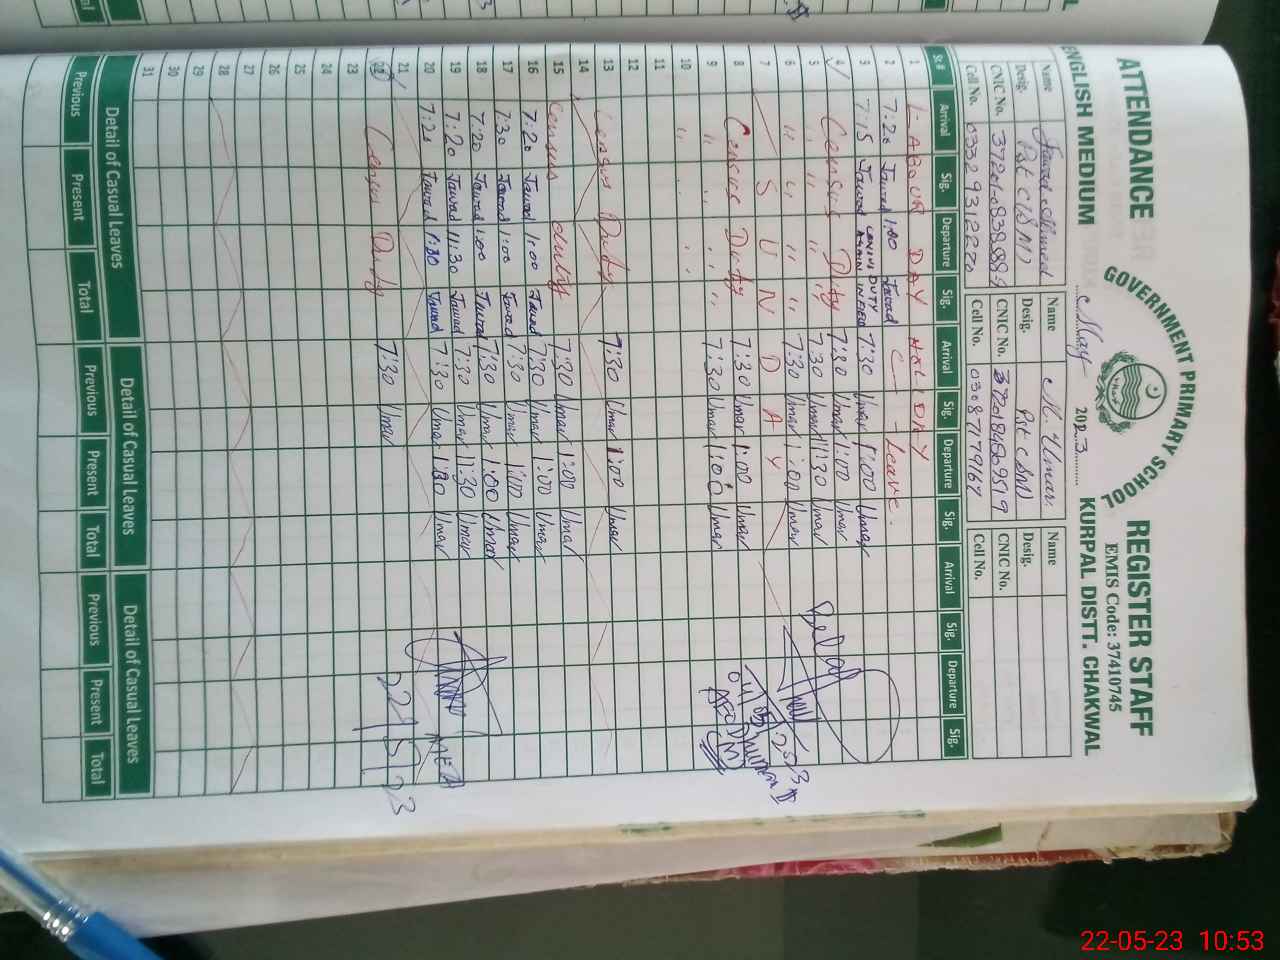 ATTENDANCE
GOVERNMENT PRIMARY SCHOOL
REGISTER STAFF
EMIS Code: 37410745
ENGLISH MEDIUM
May 2023
KURPAL DISTT. CHAKWAL
Name Jawad Ahmed Name M. Umar Name
Desig. Pst Desig. Pst Desig.
CNIC No. CNIC No. CNIC No.
Cell No. 0332 9312220 Cell No. 03087179167 Cell No.
Sr.# Arrival Sig. Departure Sig. Arrival Sig. Departure Sig. Arrival Sig. Departure Sig.
1 LABOUR DAY HOLIDAY
2 7:20 Jawad 1:00 Jawad C — Leave.
3 7:15 Jawad DUTY 7:30 Umar 1:00 Umar
4 Census Duty 7:30 Umar 1:00 Umar
5 " " " " 7:30 Umar 11:30 Umar
6 " " " " 7:30 Umar 1:00 Umar
7 S U N D A Y
8 Census Duty 7:30 Umar 1:00 Umar
9 " " " " 7:30 Umar 1:00 Umar
10
11
12
13 Census Duty 7:30 Umar 1:00 Umar
14
15 Census duty 7:30 Umar 1:00 Umar
16 7:20 Jawad 1:00 Jawad 7:30 Umar 1:00 Umar
17 7:30 Jawad 1:00 Jawad 7:30 Umar 1:00 Umar
18 7:20 Jawad 1:00 Jawad 7:30 Umar 1:00 Umar
19 7:20 Jawad 11:30 Jawad 7:30 Umar 11:30 Umar
20 7:20 Jawad 1:30 Jawad 7:30 Umar 1:30 Umar
21
22 Census Duty 7:30 Umar
23
24
25
26
27
28
29
30
31
22/5/23
Detail of Casual Leaves Detail of Casual Leaves Detail of Casual Leaves
Previous Present Total Previous Present Total Previous Present Total
22-05-23 10:53